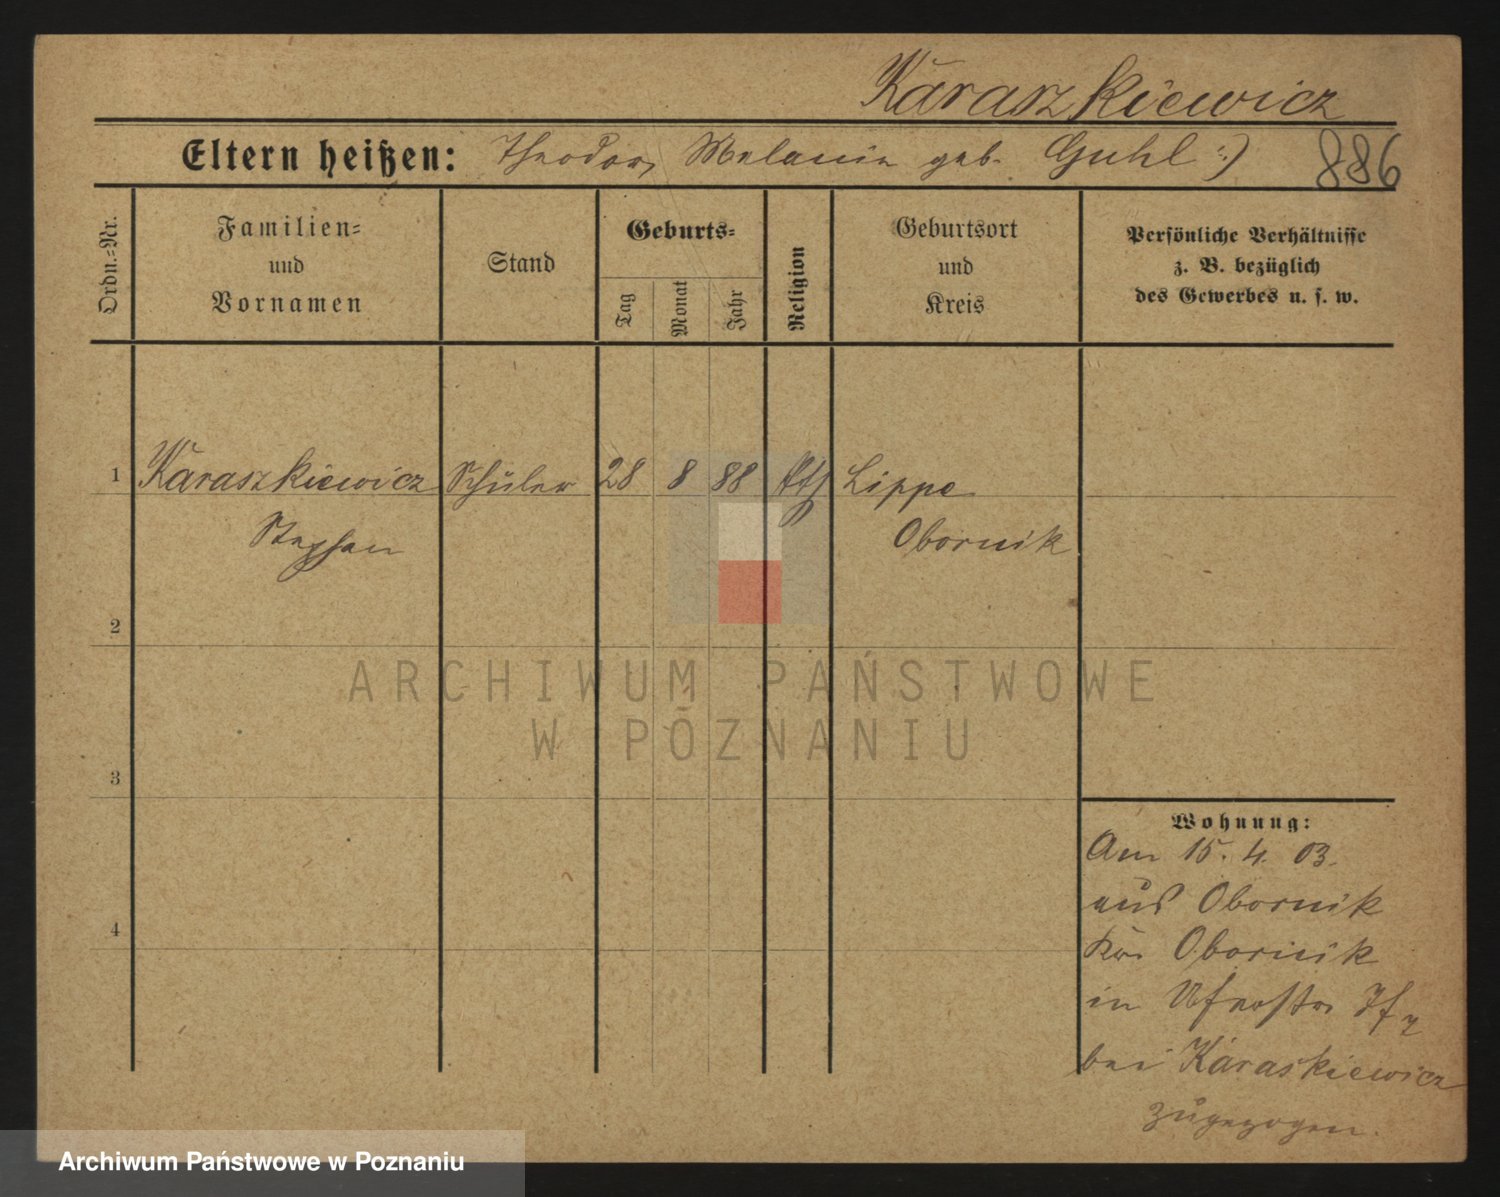 Karaszkiewicz
Eltern heißen: Theodor, Melanie geb. Guhl :)
886
Ordn.-Nr.
Familien-
und
Vornamen
Stand
Geburts-
Tag
Monat
Jahr
Religion
Geburtsort
und
Kreis
Persönliche Verhältnisse
z. B. bezüglich
des Gewerbes u. s. w.
1 Karaszkiewicz Schüler 28 8 88 kth Lippe
Stephan Obornik
2
3
4
Wohnung:
Am 15. 4. 03.
aus Obornik
Krs. Obornik
in
bei Karaskiewicz
zugezogen.
ARCHIWUM PAŃSTWOWE
W POZNANIU
Archiwum Państwowe w Poznaniu